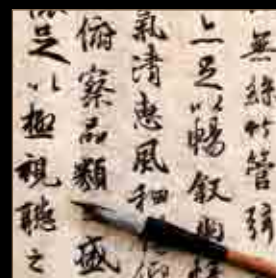 無絲竹管弦
亦足以暢叙幽
氣清惠風和
俯察品類盛
足以極視聽之